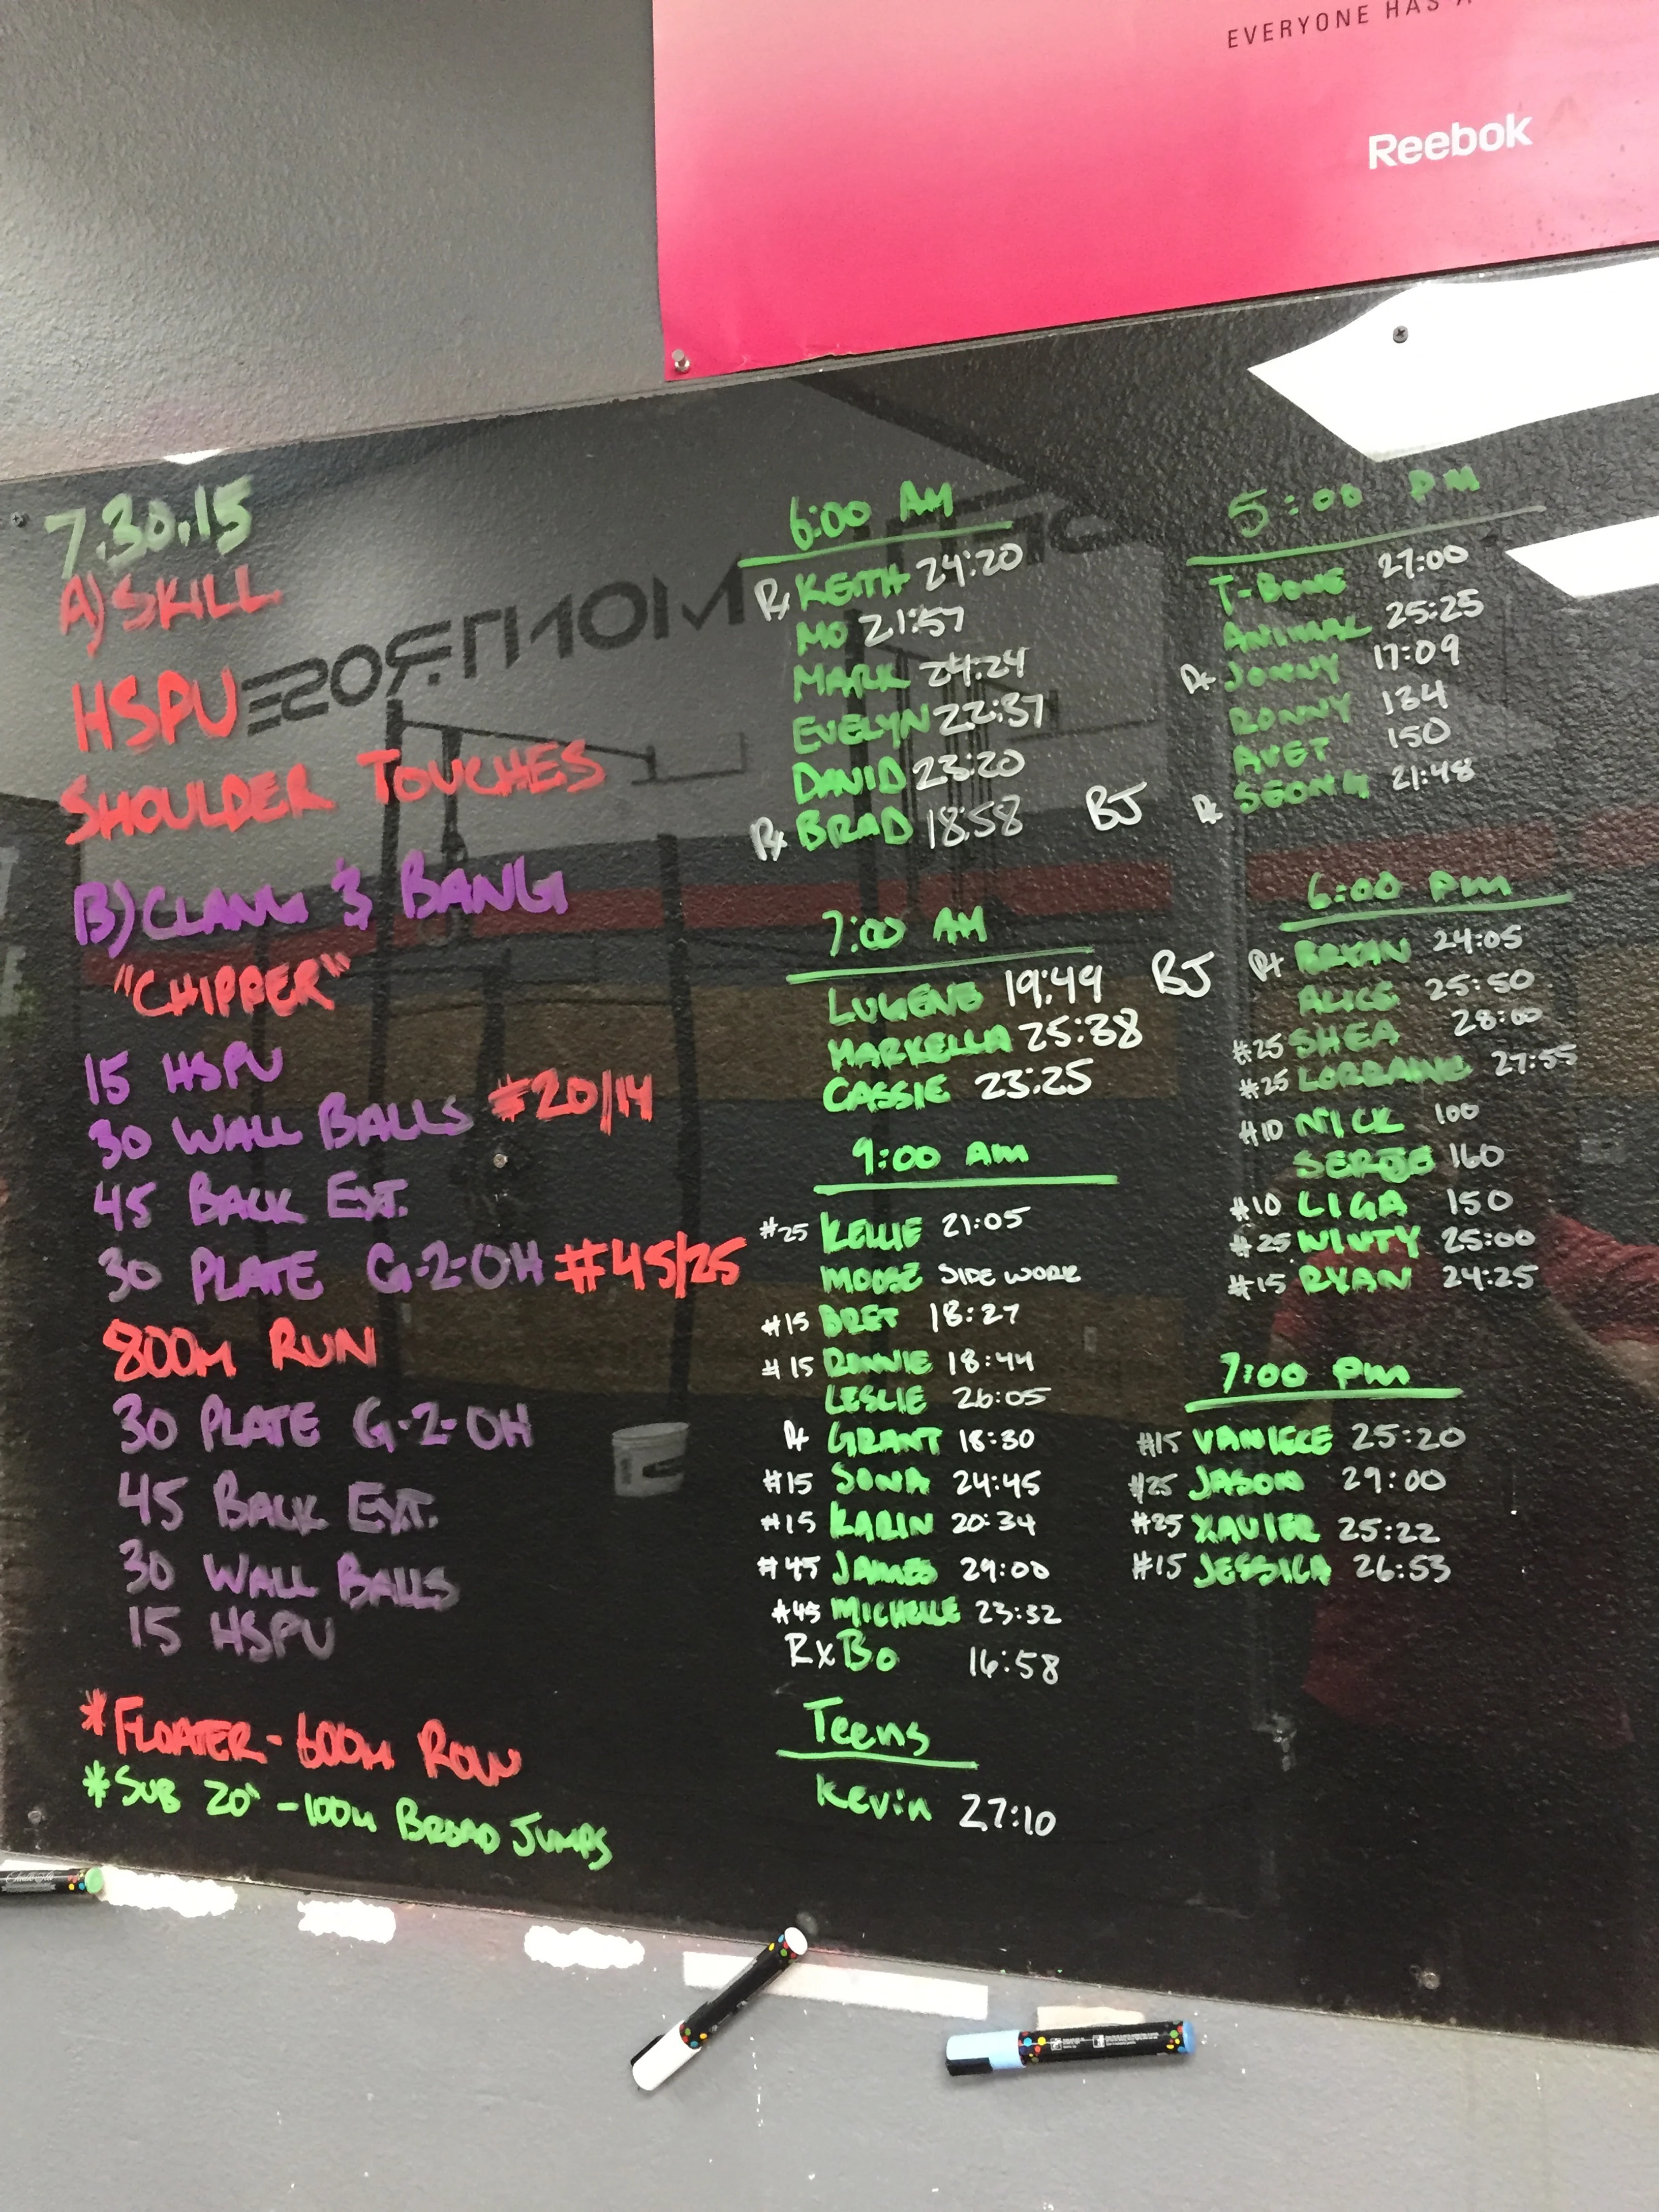 EVERYONE HAS A
Reebok
7.30.15
A) SKILL
HSPU
SHOULDER TOUCHES
B) CLANG & BANG
"CHIPPER"
15 HSPU
30 WALL BALLS #20/14
45 BACK EXT.
30 PLATE G-2-OH #45/25
800M RUN
30 PLATE G-2-OH
45 BACK EXT.
30 WALL BALLS
15 HSPU
*FLOATER - 600M ROW
*SUB 20" - 100M BROAD JUMPS
6:00 AM
Rx KEITH 24:20
MO 21:57
MARK 24:24
EVELYN 22:37
DAVID 23:20
Rx BRAD 18:58 BJ
7:00 AM
LUGENE 19:49 BJ
MARKELLA 25:38
CASSIE 23:25
9:00 AM
#25 KELLIE 21:05
MOOSE SIDE WORK
#15 BRET 18:27
#15 RONNIE 18:44
LESLIE 26:05
Rx GRANT 18:30
#15 SONA 24:45
#15 KARIN 20:34
#45 JAMES 29:00
#45 MICHELLE 23:32
Rx BO 16:58
Teens
Kevin 27:10
5:00 PM
T-BONE 27:00
ANIMAL 25:25
Rx JONNY 17:09
RONNY 134
AVET 150
Rx SEONG 21:48
6:00 PM
Rx BRYAN 24:05
ALICE 25:50
#25 SHEA 28:00
#25 LORRAINE 27:55
#10 NICK 100
SERJE 160
#10 LIGA 150
#25 WINTY 25:00
#15 RYAN 24:25
7:00 PM
#15 25:20
#25 JASON 29:00
#25 XAVIER 25:22
#15 JESSICA 26:53